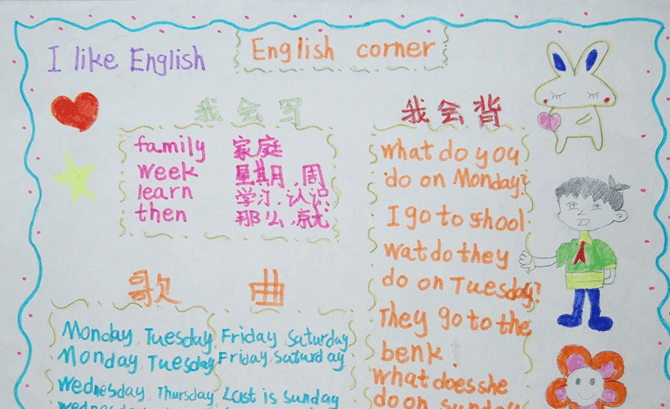 I like English
English corner
我会写
family 家庭
week 星期,周
learn 学习,认识
then 那么,就
我会背
what do you
do on Monday?
I go to shool
wat do they
do on Tuesday?
They go to the
benk.
what does she
do on sunday
歌曲
Monday, Tuesday, Friday, Saturday
Monday, Tuesday, Friday, Saturday
Wednesday, Thursday, Last is sunday